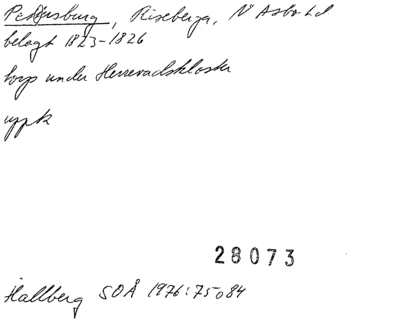 Petersburg, Riseberga, N Åsbo hd
belagt 1823-1826
torp under Herrevadskloster
uppk
28073
Hallberg SOÅ 1976:75 o 84